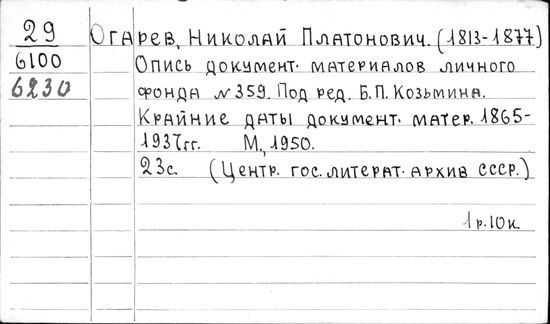 29 Огарев, Николай Платонович. (1813-1877)
6100 Опись документ. материалов личного
6230 фонда №359. Под ред. Б.П. Козьмина.
Крайние даты документ. матер. 1865-
1937гг. М., 1950.
23с. (Центр. гос. литерат. архив СССР.)
1р.10к.